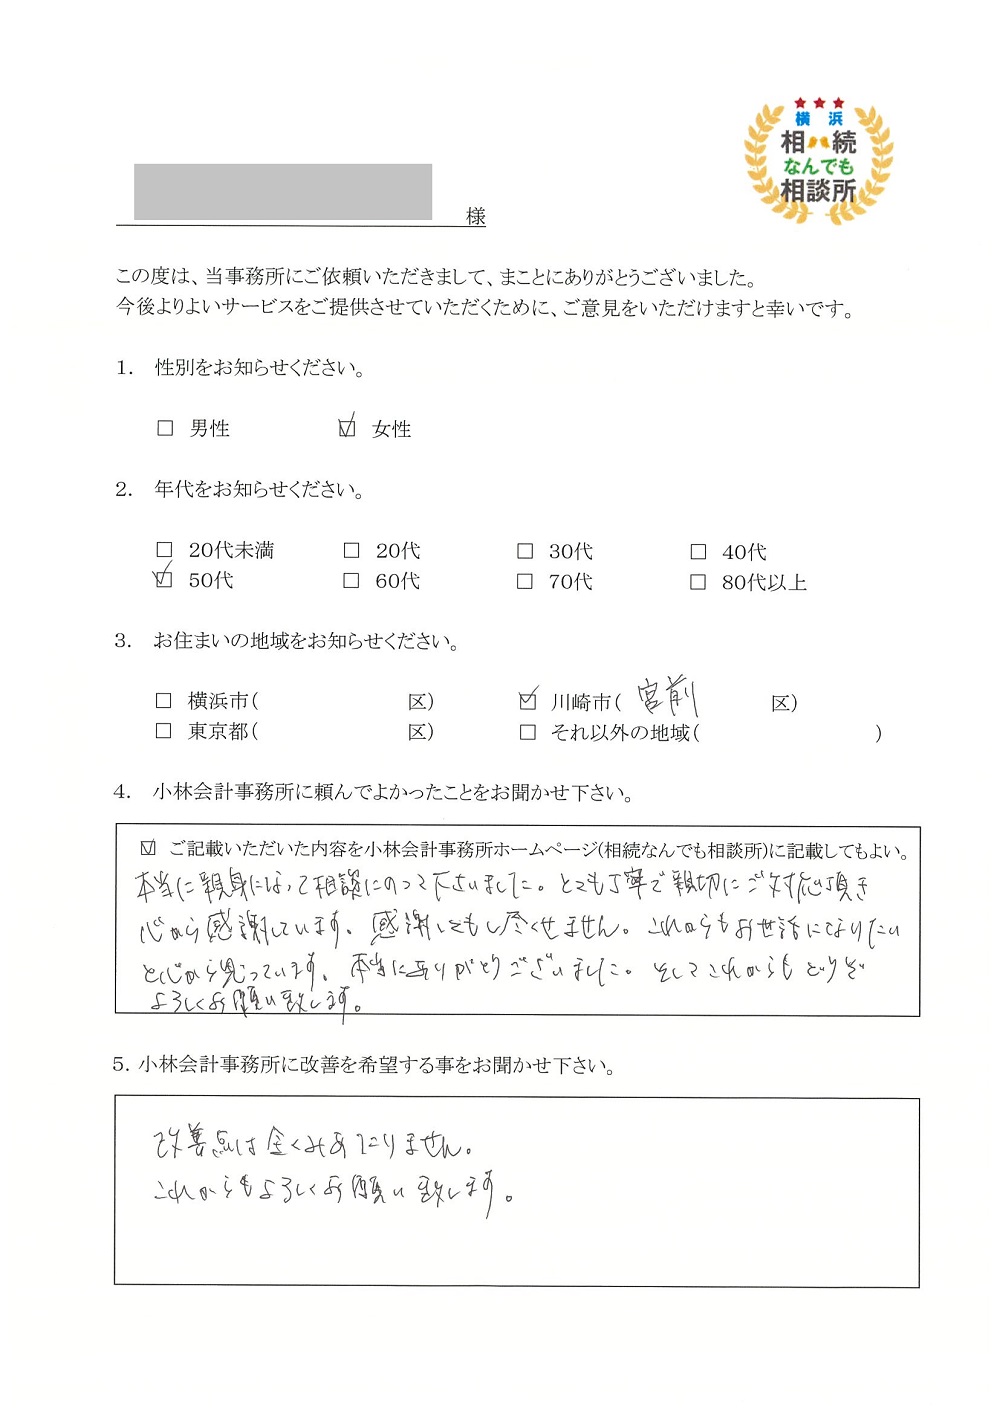 横 浜
相 続
なんでも
相談所
様
この度は、当事務所にご依頼いただきまして、まことにありがとうございました。
今後よりよいサービスをご提供させていただくために、ご意見をいただけますと幸いです。
1. 性別をお知らせください。
□ 男性 ☑ 女性
2. 年代をお知らせください。
□ 20代未満 □ 20代 □ 30代 □ 40代
☑ 50代 □ 60代 □ 70代 □ 80代以上
3. お住まいの地域をお知らせください。
□ 横浜市( 区) ☑ 川崎市( 宮前 区)
□ 東京都( 区) □ それ以外の地域( )
4. 小林会計事務所に頼んでよかったことをお聞かせ下さい。
☑ ご記載いただいた内容を小林会計事務所ホームページ(相続なんでも相談所)に記載してもよい。
本当に親身になって相談にのって下さいました。とても丁寧で親切にご対応頂き
心から感謝しています。感謝してもし尽くせません。これからもお世話になりたい
と心から思っています。本当にありがとうございました。そしてこれからもどうぞ
よろしくお願い致します。
5. 小林会計事務所に改善を希望する事をお聞かせ下さい。
改善点は全くみあたりません。
これからもよろしくお願い致します。